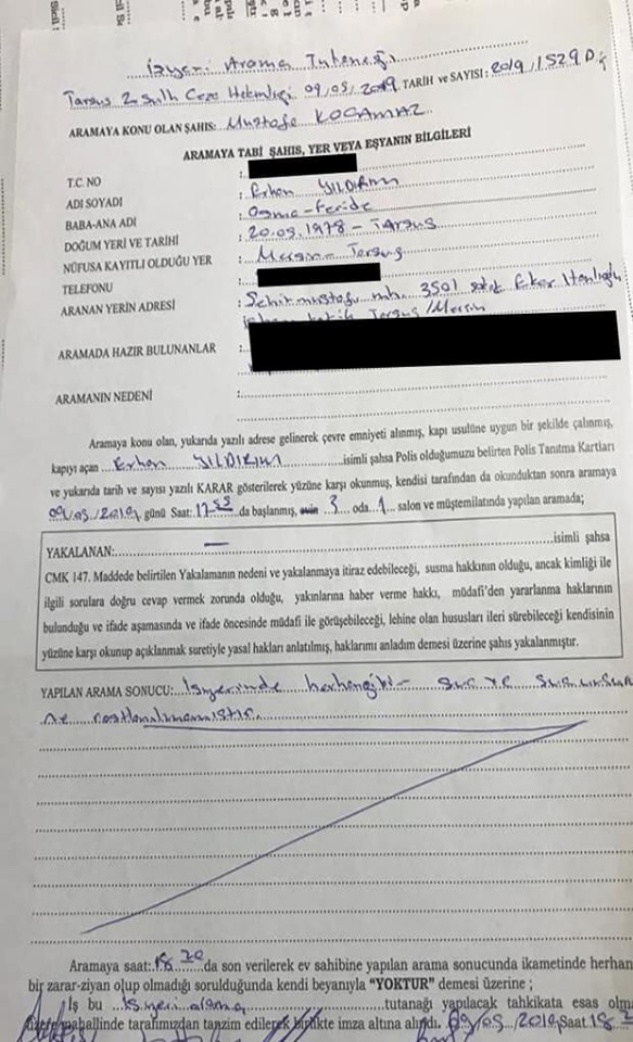 İşyeri Arama Tutanağı
Tarsus 2. Sulh Ceza Hakimliği 09/03/2019 TARİH ve SAYISI: 2019/1529 D.İ
ARAMAYA KONU OLAN ŞAHIS: Mustafa KOCAMAZ
ARAMAYA TABİ ŞAHIS, YER VEYA EŞYANIN BİLGİLERİ
T.C. NO :
ADI SOYADI : Erhan YILDIRIM
BABA-ANA ADI : Osman-Feride
DOĞUM YERİ VE TARİHİ : 20.09.1978 - Tarsus
NÜFUSA KAYITLI OLDUĞU YER : Mersin - Tarsus
TELEFONU :
ARANAN YERİN ADRESİ : Şehitmustafa mh. 3501 sokak Eker
Tarsus/Mersin
ARAMADA HAZIR BULUNANLAR :
ARAMANIN NEDENİ :
Aramaya konu olan, yukarıda yazılı adrese gelinerek çevre emniyeti alınmış, kapı usulüne uygun bir şekilde çalınmış,
kapıyı açan Erhan YILDIRIM isimli şahsa Polis olduğumuzu belirten Polis Tanıtma Kartları
ve yukarıda tarih ve sayısı yazılı KARAR gösterilerek yüzüne karşı okunmuş, kendisi tarafından da okunduktan sonra aramaya
09/03/2019 günü Saat: da başlanmış, 3 oda 1 salon ve müştemilatında yapılan aramada;
YAKALANAN: — isimli şahsa
CMK 147. Maddede belirtilen Yakalamanın nedeni ve yakalanmaya itiraz edebileceği, susma hakkının olduğu, ancak kimliği ile
ilgili sorulara doğru cevap vermek zorunda olduğu, yakınlarına haber verme hakkı, müdafi'den yararlanma haklarının
bulunduğu ve ifade aşamasında ve ifade öncesinde müdafi ile görüşebileceği, lehine olan hususları ileri sürebileceği kendisinin
yüzüne karşı okunup açıklanmak suretiyle yasal hakları anlatılmış, haklarımı anladım demesi üzerine şahıs yakalanmıştır.
YAPILAN ARAMA SONUCU: İşyerinde herhangi bir suç ve suç unsuruna
rastlanılmamıştır.
Aramaya saat: 18 20 da son verilerek ev sahibine yapılan arama sonucunda ikametinde herhan
bir zarar-ziyan olup olmadığı sorulduğunda kendi beyanıyla "YOKTUR" demesi üzerine ;
İş bu İşyeri arama tutanağı yapılacak tahkikata esas olma
üzere mahallinde tarafımızdan tanzim edilerek birlikte imza altına alındı. 09/03/2019 Saat 18